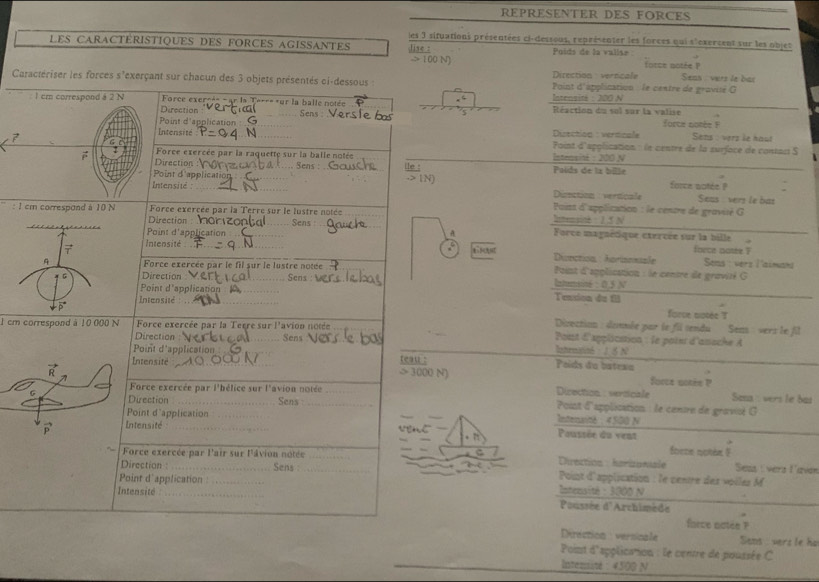 LES CARACTÉRISTIQUES DES FORCES AGISSANTES
Caractériser les forces s'exerçant sur chacun des 3 objets présentés ci-dessous :
: 1 cm correspond à 2 N
Force exercée par la Terre sur la balle notée P
Direction : vertical Sens : Vers le bas
Point d'application : G
Intensité P = 0,4 N
F
G C
Force exercée par la raquette sur la balle notée
Direction horizontal Sens : Gauche
Point d'application C
Intensité : 1 N
: 1 cm correspond à 10 N
Force exercée par la Terre sur le lustre notée
Direction : horizontal Sens : gauche
Point d'application : C
Intensité : F = 9 N
T
A
G
P
Force exercée par le fil sur le lustre notée
Direction vertical Sens : vers le bas
Point d'application A
Intensité :
1 cm correspond à 10 000 N
Force exercée par la Terre sur l'avion notée
Direction : vertical Sens vers le bas
Point d'application : G
Intensité 10.000 N
R
G
P
Force exercée par l'hélice sur l'avion notée
Direction Sens
Point d'application
Intensité
Force exercée par l'air sur l'avion notée
Direction : Sens :
Point d'application :
Intensité :
REPRESENTER DES FORCES
les 3 situations présentées ci-dessous, représenter les forces qui s'exercent sur les objets
lise :
-> 100 N)
Poids de la valise
force notée P
Direction : verticale Sens : vers le bas
Point d'application : le centre de gravité G
Intensité : 200 N
G
S
Réaction du sol sur la valise
force notée
Direction : verticale Sens : vers le haut
Point d'application : le centre de la surface de contact S
Intensité : 200 N
lle :
-> 1N)
Poids de la bille
force notée P
Direction : verticale Sens : vers le bas
Point d'application : le centre de gravité G
Intensité : 1,5 N
A
G
aimant
Force magnétique exercée sur la bille
force notée F
Direction : horizontale Sens : vers l'aimant
Point d'application : le centre de gravité G
Intensité : 0,5 N
Tension du fil
force notée T
Direction : donnée par le fil tendu Sens : vers le fil
Point d'application : le point d'attache A
Intensité : 1,6 N
teau :
-> 3000 N)
Poids du bateau
force notée P
Direction : verticale Sens : vers le bas
Point d'application : le centre de gravité G
Intensité : 4500 N
vent
M
G
Poussée du vent
force notée F
Direction : horizontale Sens : vers l'avant
Point d'application : le centre des voiles M
Intensité : 3000 N
Poussée d'Archimède
force notée
Direction : verticale Sens : vers le ha
Point d'application : le centre de poussée C
Intensité : 4500 N